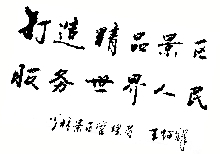 打造精品景区
服务世界人民
景区管理
王